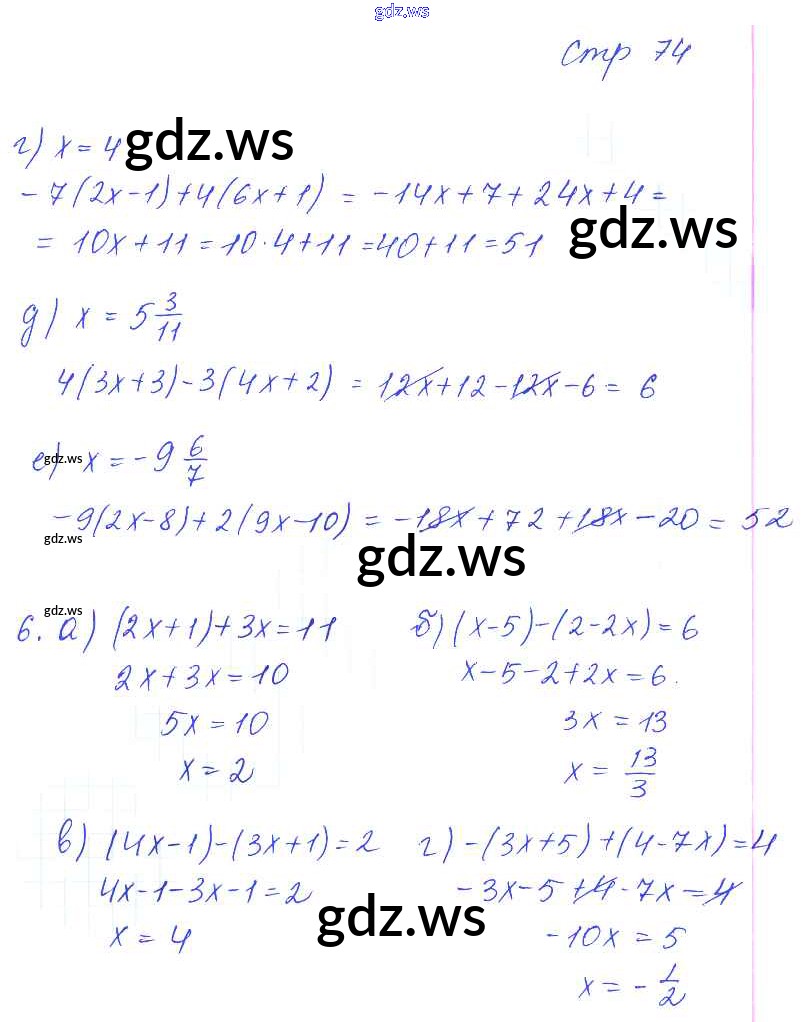 gdz.ws
Стр 74
г) x = 4 gdz.ws
-7(2x-1)+4(6x+1) = -14x+7+24x+4=
= 10x+11=10·4+11=40+11=51 gdz.ws
д) x = 5 3/11
4(3x+3)-3(4x+2) = 12x+12-12x-6= 6
е) gdz.ws x = -9 6/7
-9(2x-8)+2(9x-10) = -18x+72+18x-20= 52
gdz.ws gdz.ws
gdz.ws
6. а) (2x+1)+3x=11 б) (x-5)-(2-2x)=6
2x+3x=10 x-5-2+2x=6.
5x=10 3x=13
x=2 x= 13/3
в) (4x-1)-(3x+1)=2 г) -(3x+5)+(4-7x)=4
4x-1-3x-1=2 gdz.ws -3x-5+4-7x=4
x=4 -10x=5
x=-1/2